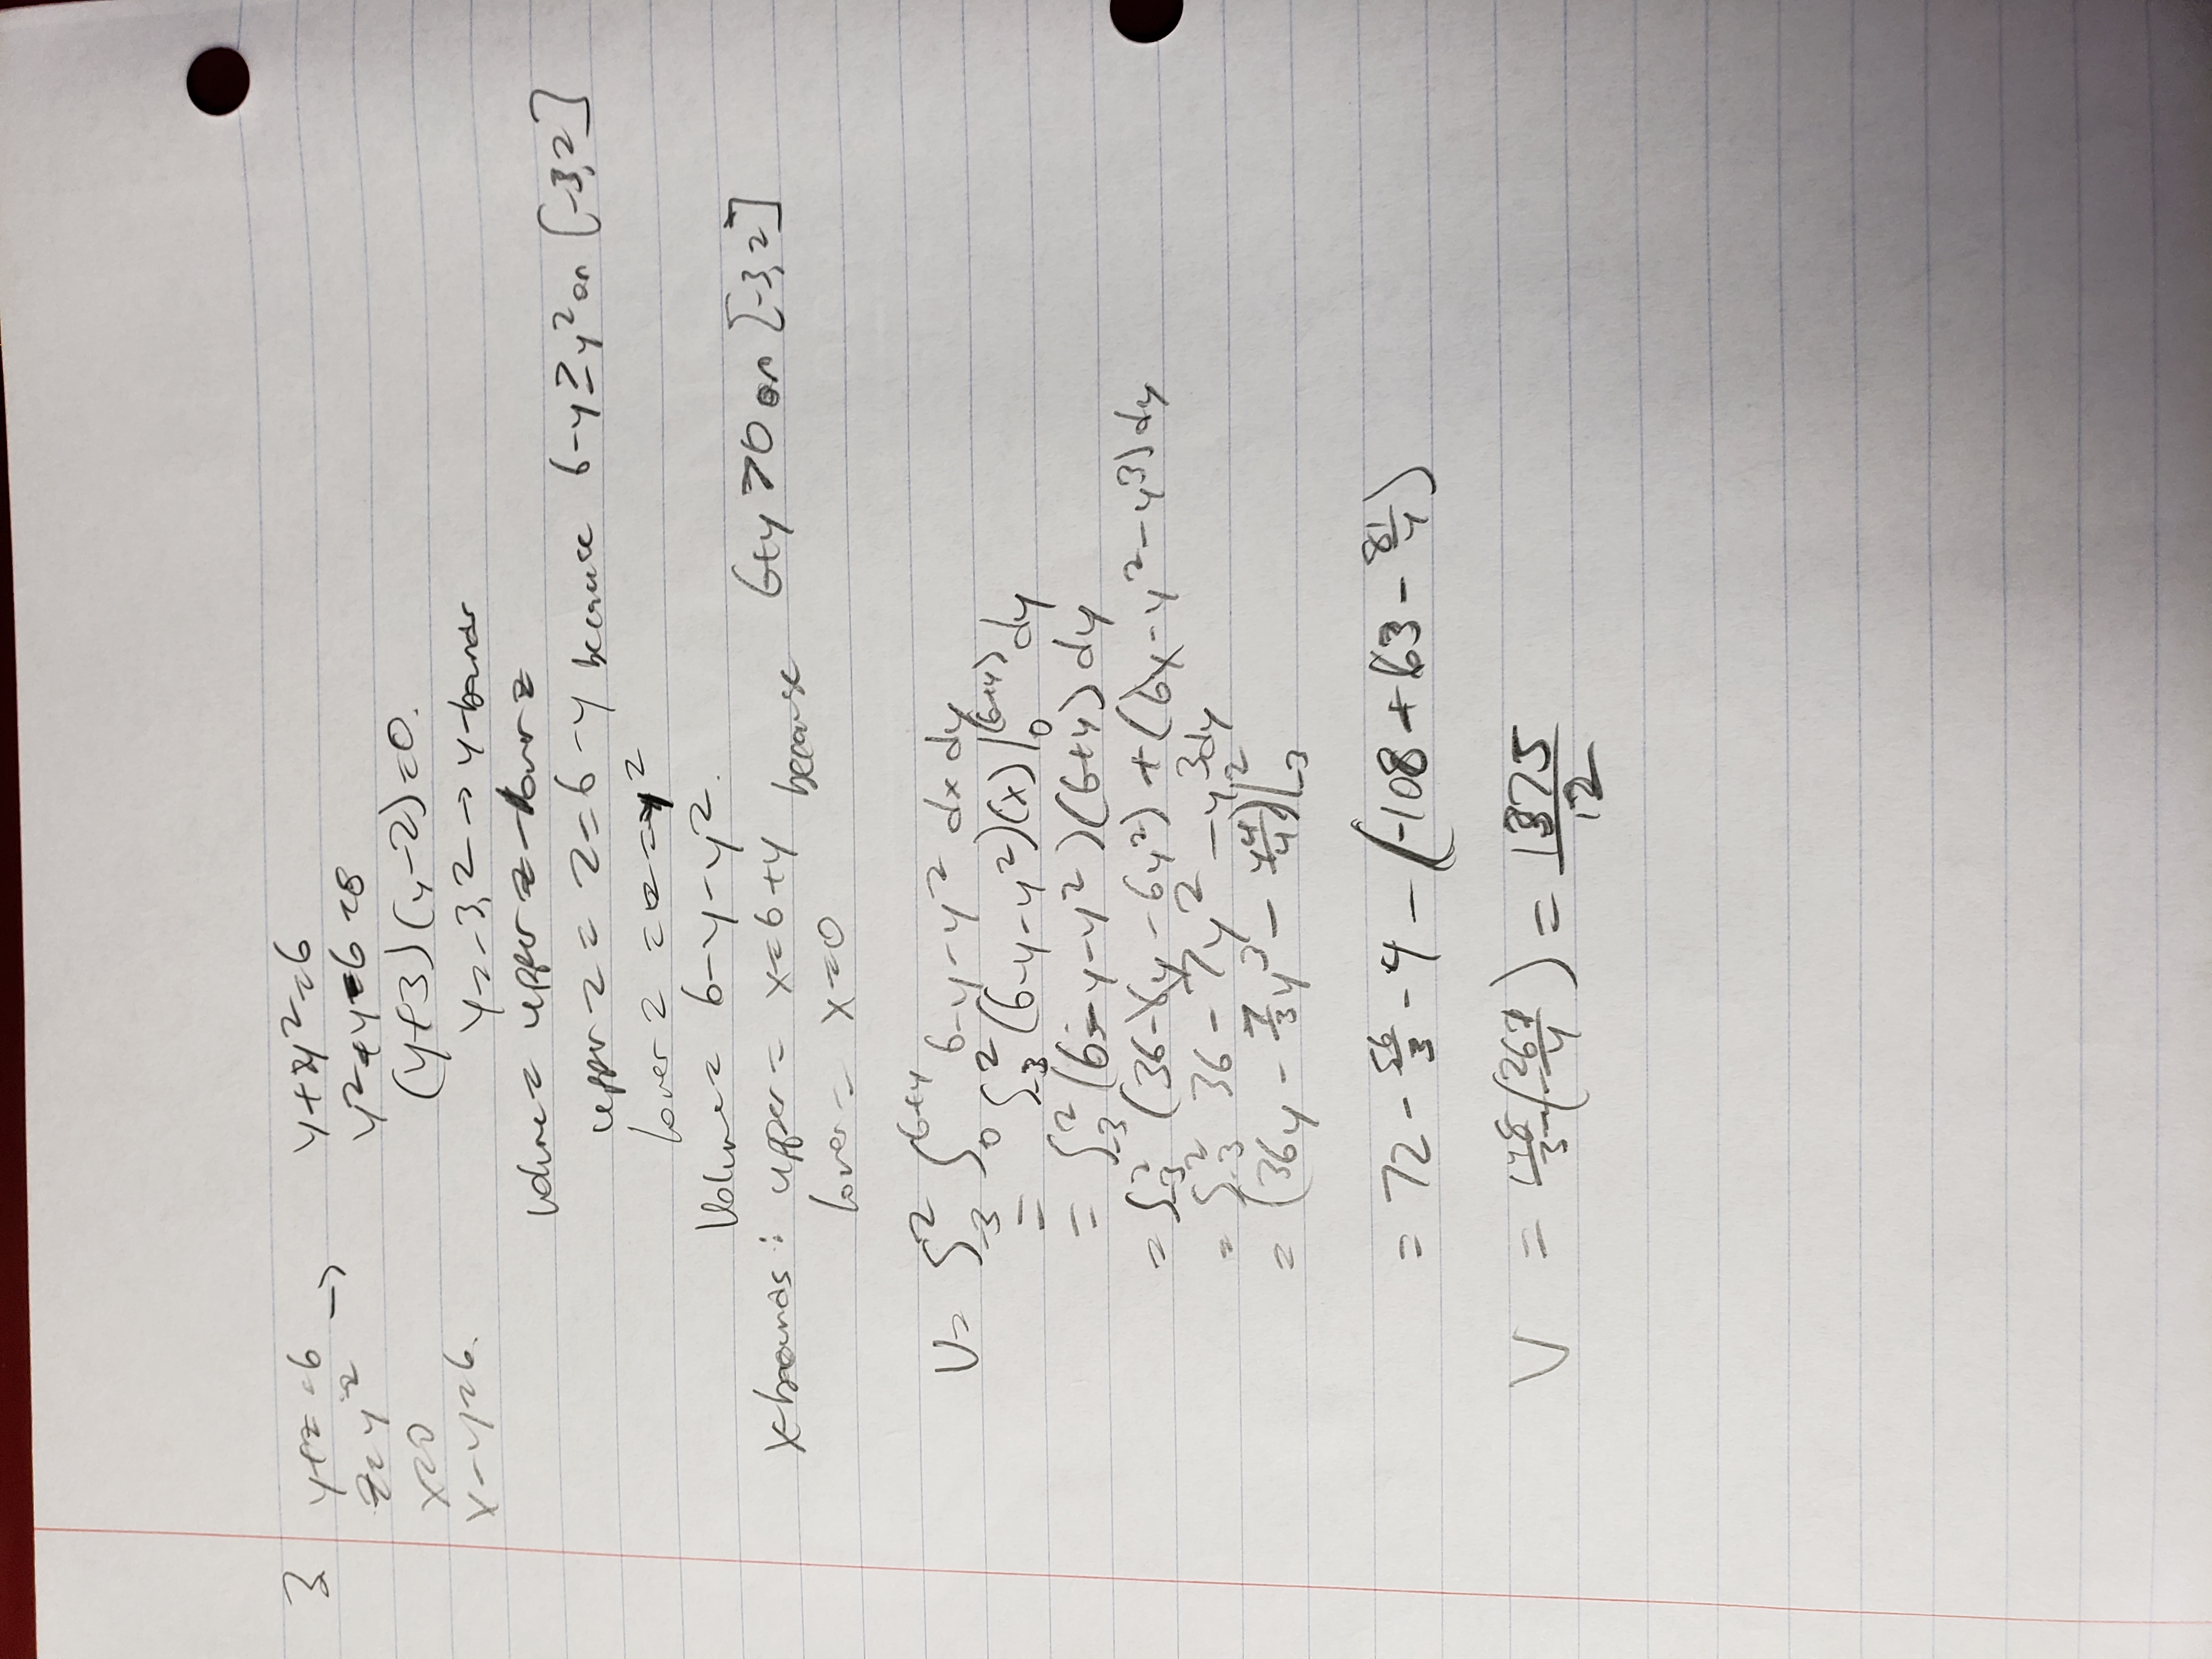 3 y+z=6 → y+y²=6
z=y² y²+y-6=0
x=0 (y+3)(y-2)=0.
x-y=6. y=-3,2 → y-bounds
Volume = upper z - lower z
upper z = z=6-y because 6-y≥y² on [-3,2]
lower z = z=y²
Volume = 6-y-y².
x-bounds: upper = x=6+y because 6+y>0 on [-3,2]
lower = x=0
V= ∫₋₃² ∫₀⁶⁺ʸ 6-y-y² dx dy
= ∫₋₃² (6-y-y²)(x)|₀⁽⁶⁺ʸ⁾ dy
= ∫₋₃² (6-y-y²)(6+y) dy
= ∫₋₃² (36-6y-6y²) + (6y-y²-y³) dy
= ∫₋₃² 36-7y²-y³ dy
= (36y - 7/3 y³ - y⁴/4)|₋₃²
= 72 - 56/3 - 4 - (-108+63-81/4)
V = 148/3 - (-261/4) = 1375/12